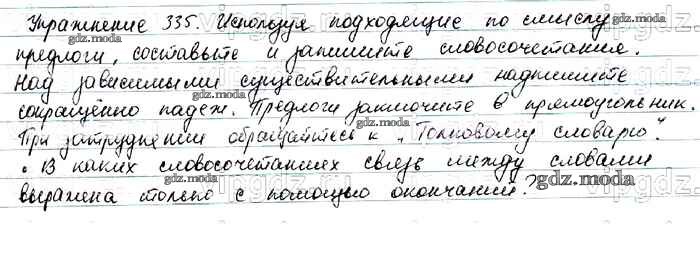 Упражнение 335. Используя подходящие по смыслу
предлоги, составьте и запишите словосочетания.
Над зависимыми существительными надпишите
сокращённо падеж. Предлоги заключите в прямоугольник.
При затруднении обращайтесь к "Толковому словарю".
• В каких словосочетаниях связь между словами
выражена только с помощью окончаний?